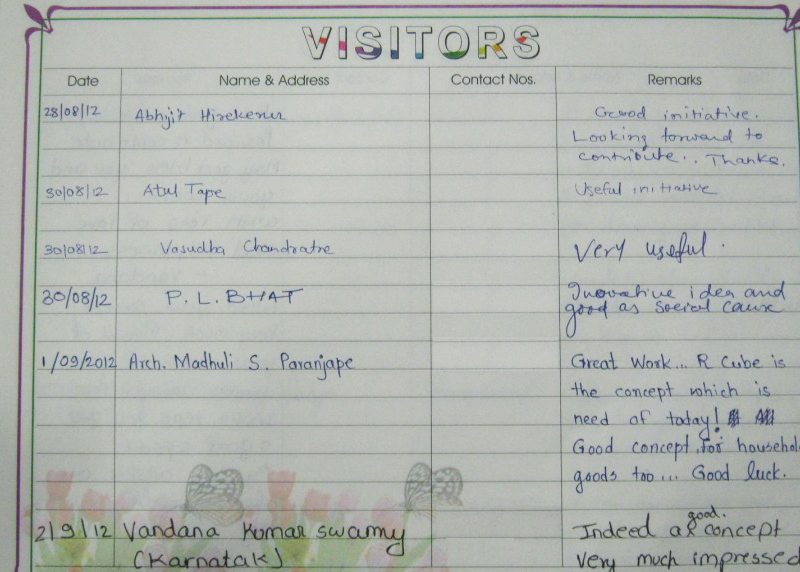 VISITORS
Date Name & Address Contact Nos. Remarks
28/08/12 Abhijit Hirekerur Good initiative.
Looking forward to
contribute.. Thanks.
30/08/12 Atul Tape Useful initiative
30/08/12 Vasudha Chandratre Very useful.
30/08/12 P. L. BHAT Inovative idea and
good as social cause
1/09/2012 Arch. Madhuli S. Paranjape Great Work... R Cube is
the concept which is
need of today!
Good concept for household
goods too... Good luck.
2/9/12 Vandana Kumarswamy Indeed a good concept
(Karnatak) Very much impressed